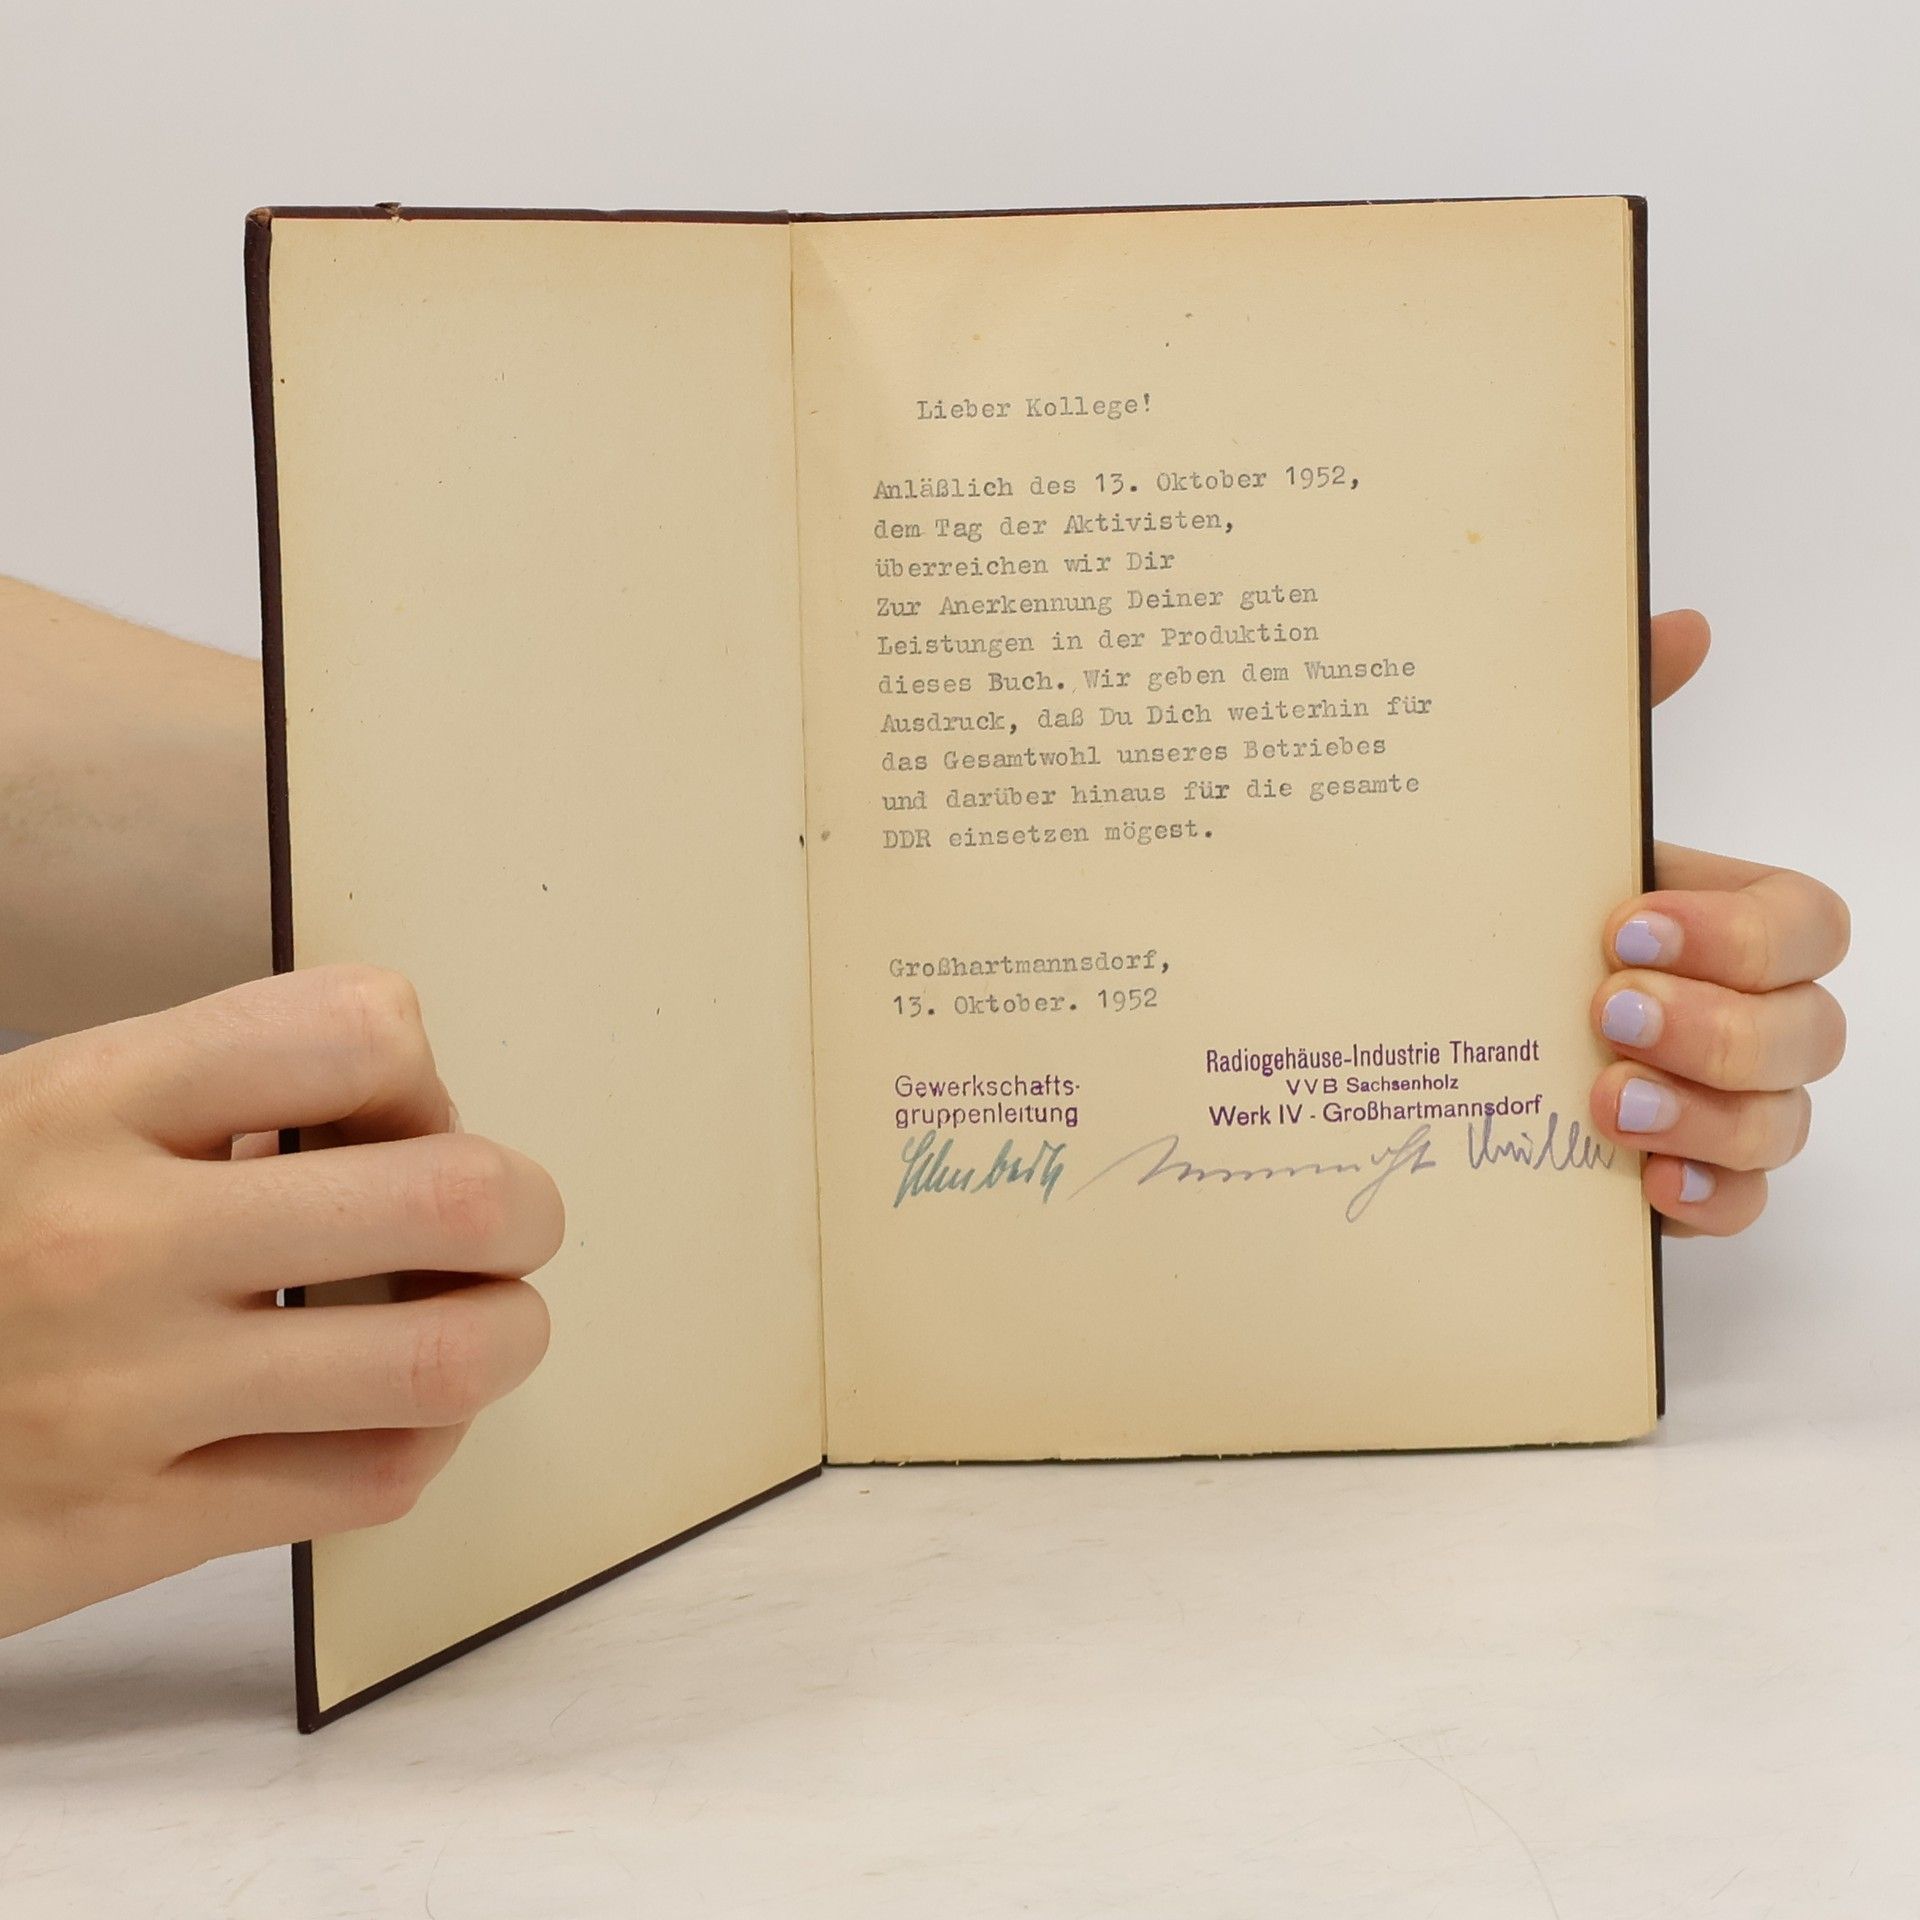 Lieber Kollege!
Anläßlich des 13. Oktober 1952,
dem Tag der Aktivisten,
überreichen wir Dir
Zur Anerkennung Deiner guten
Leistungen in der Produktion
dieses Buch. Wir geben dem Wunsche
Ausdruck, daß Du Dich weiterhin für
das Gesamtwohl unseres Betriebes
und darüber hinaus für die gesamte
DDR einsetzen mögest.
Großhartmannsdorf,
13. Oktober. 1952
Gewerkschafts-
gruppenleitung
Radiogehäuse-Industrie Tharandt
VVB Sachsenholz
Werk IV - Großhartmannsdorf